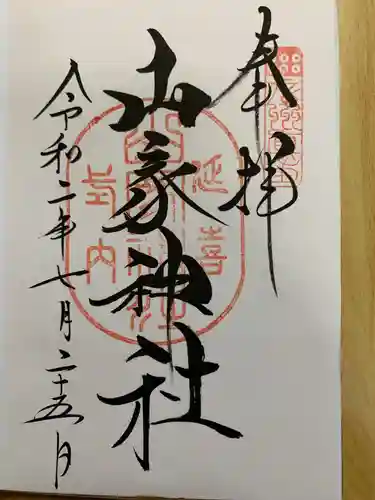 奉拝
延喜
山家神社
式内
令和二年七月二十五日